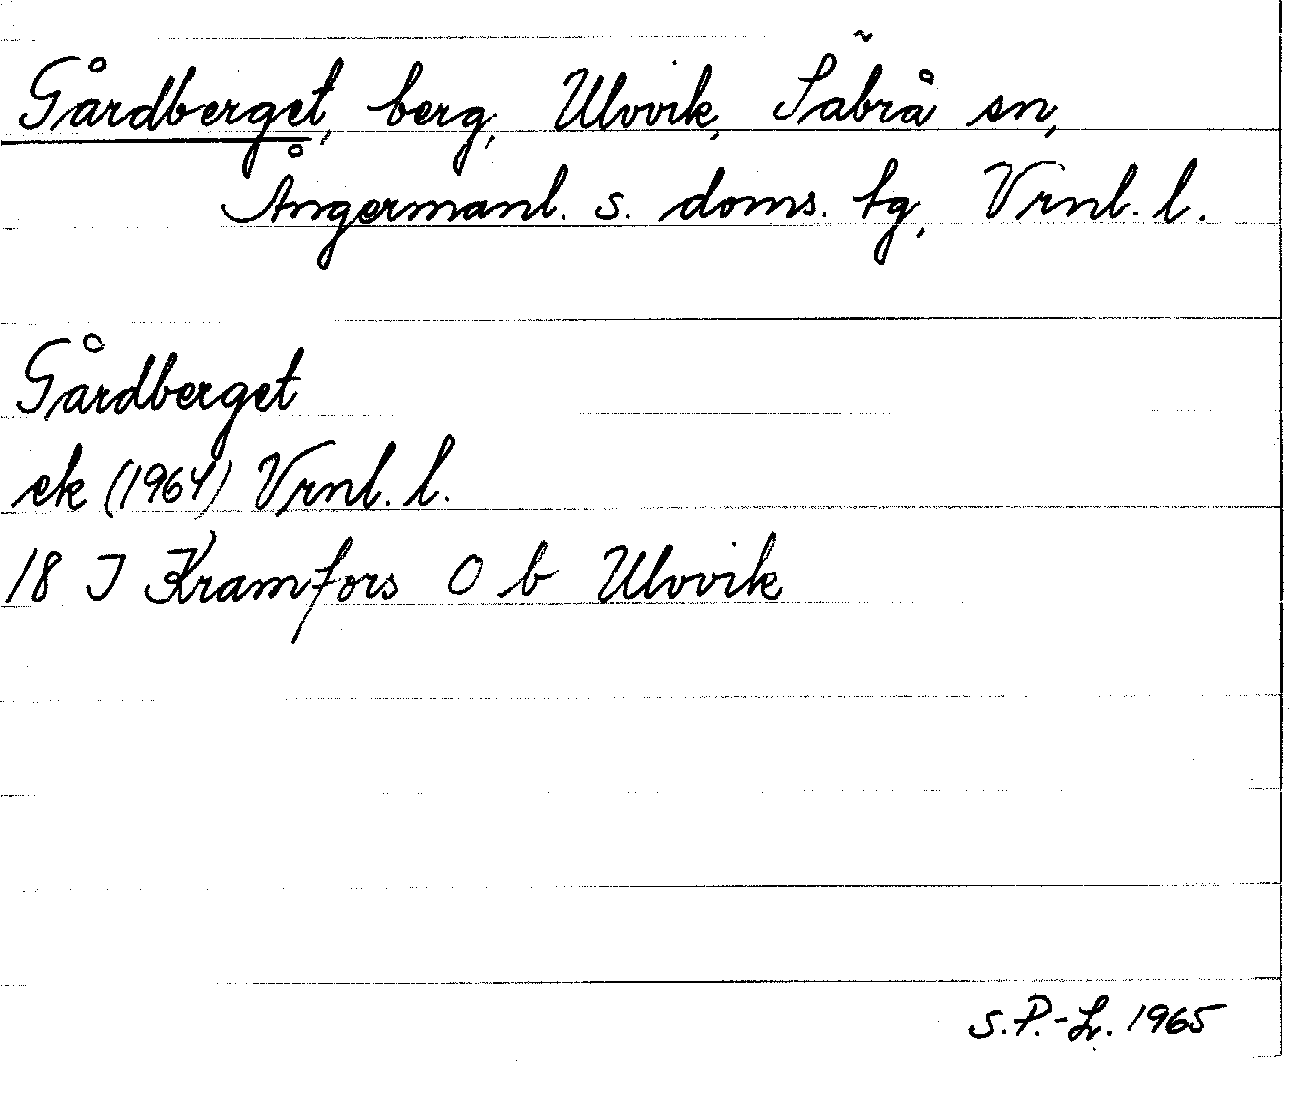 Gårdberget, berg, Ulvvik, Säbrå sn,
Ångermanl. s. doms. tg, Vrnl. l.
Gårdberget
ek (1964) Vrnl. l.
18 I Kramfors O b Ulvvik
S. P.-L. 1965